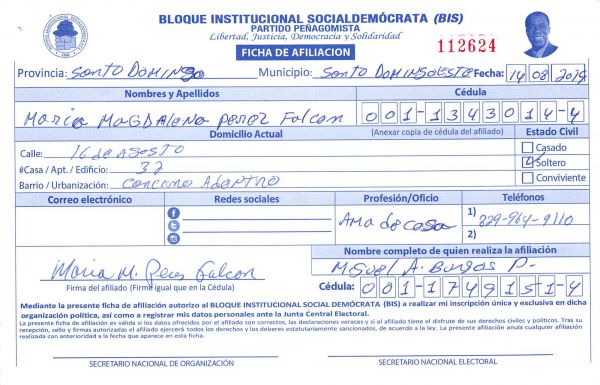 BLOQUE INSTITUCIONAL SOCIALDEMÓCRATA (BIS)
PARTIDO PEÑAGOMISTA
Libertad, Justicia, Democracia y Solidaridad
FICHA DE AFILIACION
112624
Provincia: Santo Domingo Municipio: Santo Domingo Este Fecha: 14 08 2019
Nombres y Apellidos Cédula
Maria Magdalena perez Falcon 001-1343014-4
Domicilio Actual (Anexar copia de cédula del afiliado) Estado Civil
Calle: 16 de AGOSTO Casado
#Casa / Apt. / Edificio: 32 Soltero
Barrio / Urbanización: Cancano Adentro Conviviente
Correo electrónico Redes sociales Profesión/Oficio Teléfonos
Ama de casa 1) 829-964-9110
2)
Nombre completo de quien realiza la afiliación
Maria M. Perez Falcon Miguel A. Burgos P.
Firma del afiliado (Firme igual que en la Cédula) Cédula: 001-1749151-4
Mediante la presente ficha de afiliación autorizo al BLOQUE INSTITUCIONAL SOCIAL DEMÓCRATA (BIS) a realizar mi inscripción única y exclusiva en dicha
organización política, así como a registrar mis datos personales ante la Junta Central Electoral.
La presente ficha de afiliación es válida si los datos ofrecidos por el afiliado son correctos, las declaraciones veraces y si el afiliado tiene el disfrute de sus derechos civiles y políticos. Tras su
recepción, sello y firmas autorizadas el afiliado ejercerá todos los derechos y los deberes estatutariamente sancionados, de acuerdo a la ley. La presente afiliación anula cualquier afiliación
realizada con anterioridad a la fecha que aparece en esta ficha.
SECRETARIO NACIONAL DE ORGANIZACIÓN SECRETARIO NACIONAL ELECTORAL